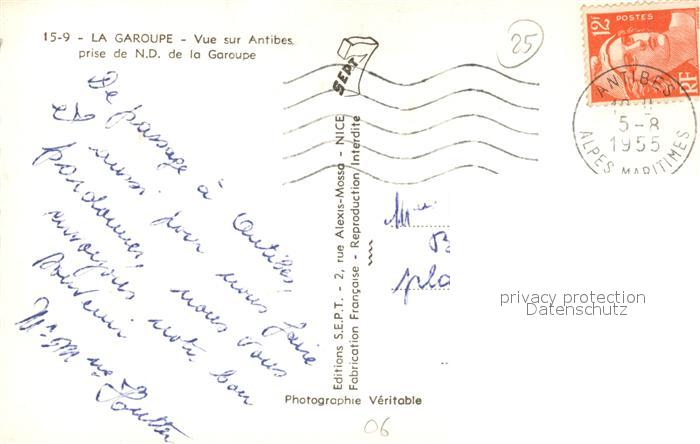 15-9 - LA GAROUPE - Vue sur Antibes
prise de N.D. de la Garoupe
25
SEPT
12F
POSTES
RF
ANTIBES
5-8
1955
ALPES MARITIMES
De passage à Antibes,
et aussi pour nous faire
pardonner, nous vous
envoyons notre bon
souvenir
Mr Mme
Editions S.E.P.T. - 2, rue Alexis-Mossa - NICE
Fabrication Française - Reproduction Interdite
Mme
B
pla
privacy protection
Datenschutz
Photographie Véritable
06